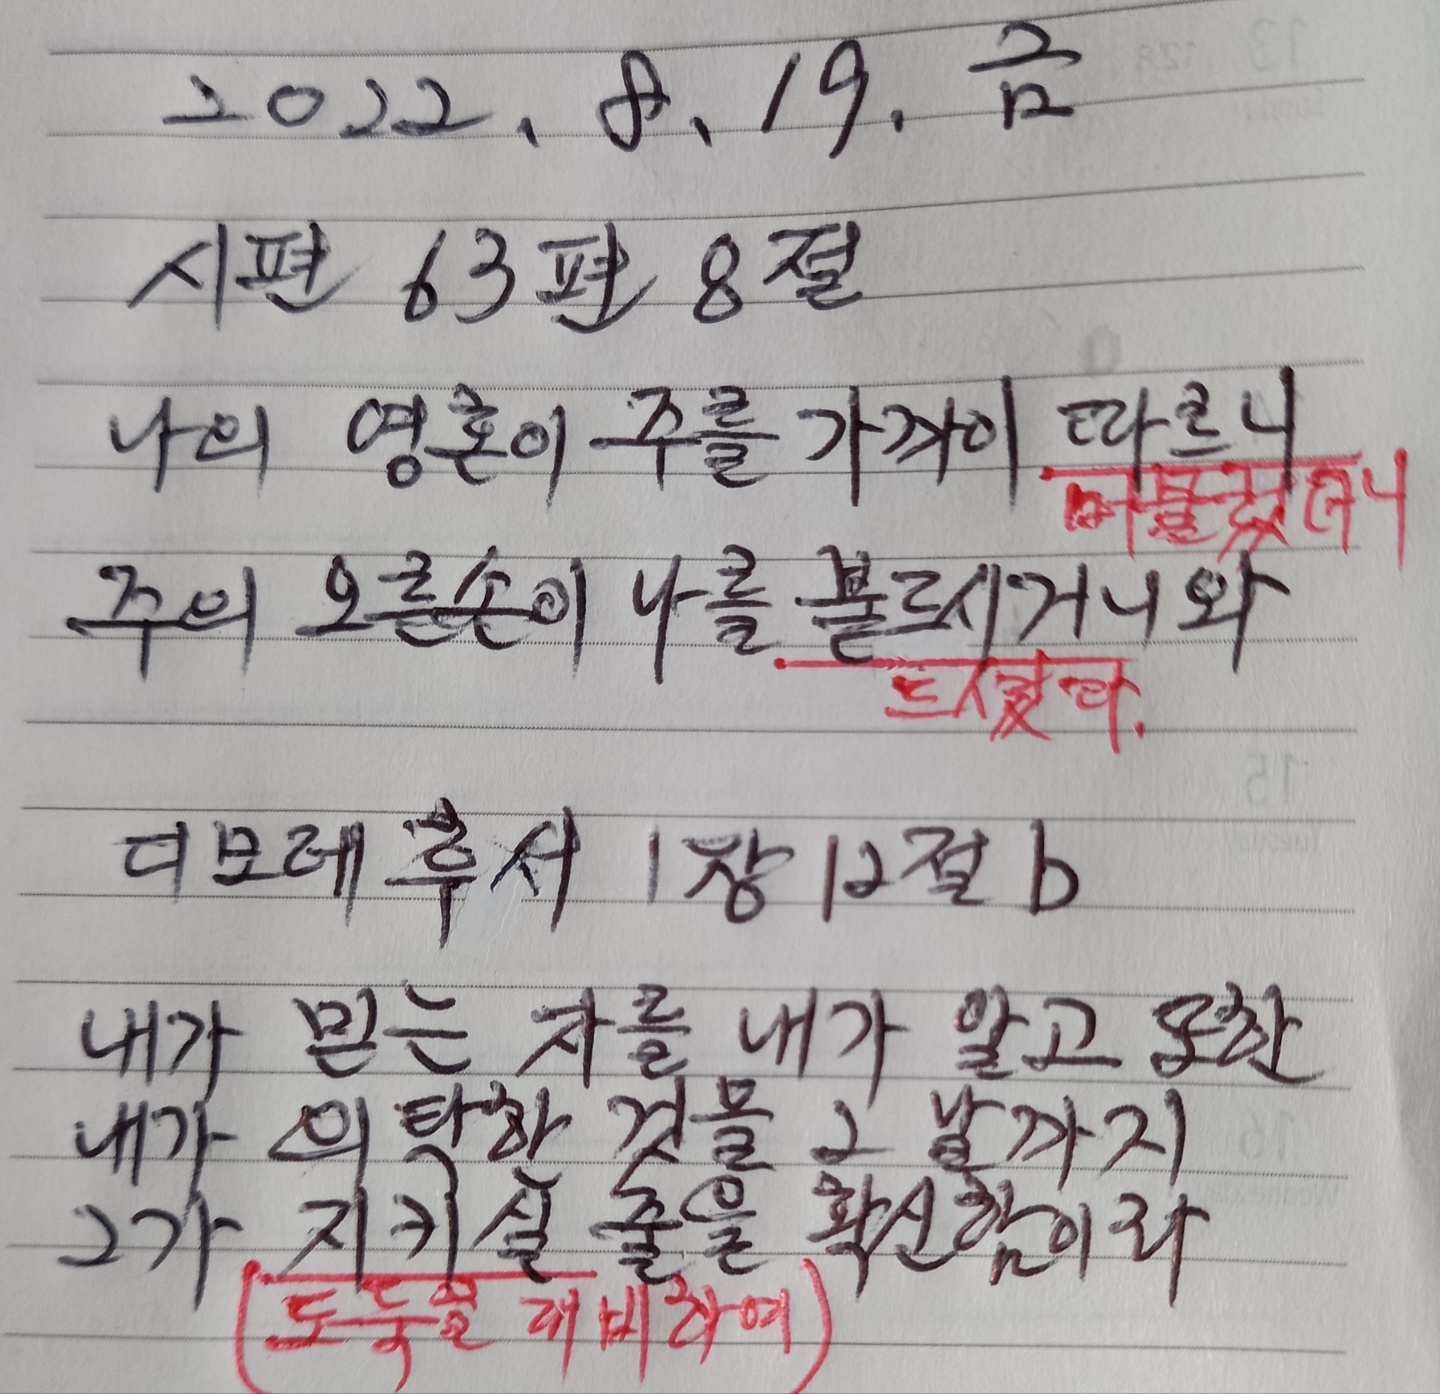 2022. 8. 19. 금
시편 63편 8절
나의 영혼이 주를 가까이 따르니
머물렀더니
주의 오른손이 나를 붙드시거니와
드셨다.
디모데 후서 1장 12절 b
내가 믿는 자를 내가 알고 또한
내가 의탁한 것을 그 날까지
그가 지키실 줄을 확신함이라
(도둑을 대비하여)